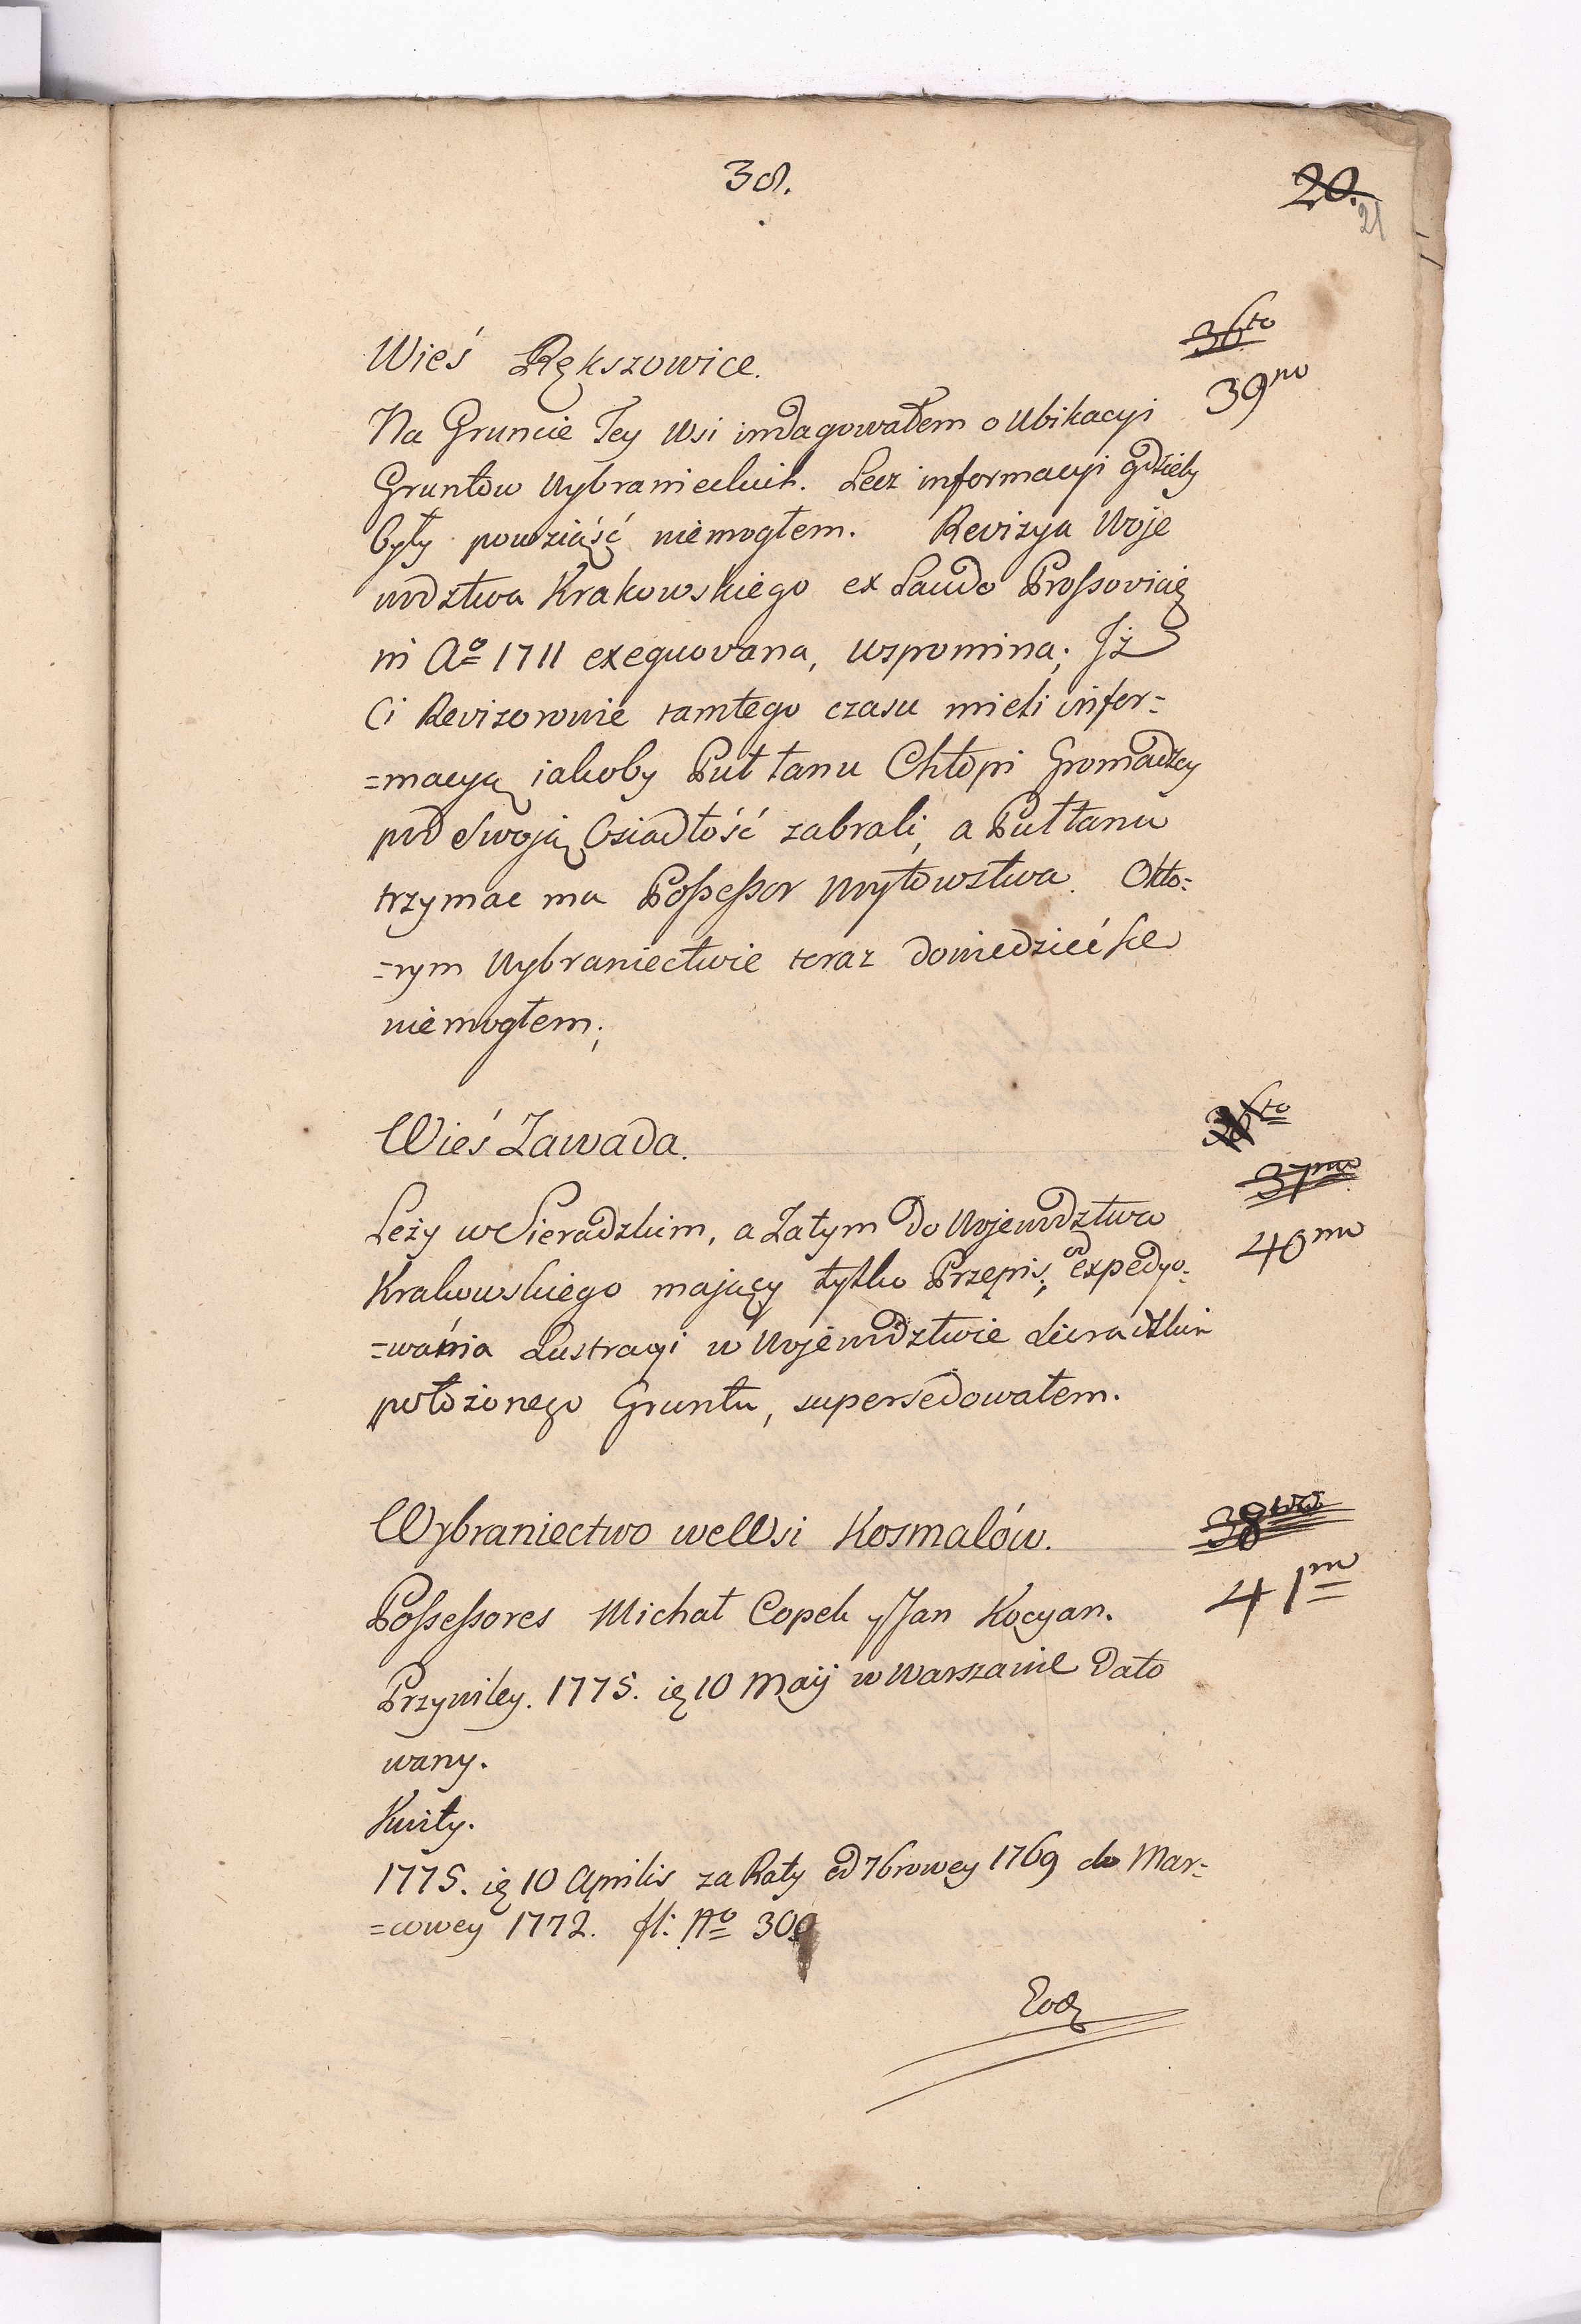 38.
20.
21
Wieś Rększowice.
36to
39no
Na Gruncie Tey Wsi indagowałem o Ubikacyi
Gruntów Wybranieckich. Lecz informacyi gdzieby
były powziąść niemogłem. Rewizya Woje
wodztwa Krakowskiego ex Laudo Proszovicę
ni Ao 1711 exequovana, wspomina; Jż
Ci Revizorowie tamtego czasu mieli infor=
=macyą iakoby Puł łanu Chłopi Gromadzcy
pod Swoją Osiadłość zabrali, a Puł łanu
trzymac ma Possessor Woytowstwa. Októ=
=rym Wybraniectwie teraz dowiedzieć się
niemogłem;
Wieś Zawada.
37mo
40mo
Leży w Sieradzkim, a Zatym do Wojewodztwa
Krakowskiego mający tylko Przepis; od expedyo=
=wania Lustracyi w Wojewodztwie Sieradzkim
położonego Gruntu, supersedowałem.
Wybraniectwo we Wsi Kosmalów.
38vo
41mo
Possessores Michał Copek y Jan Kocyan.
Przywiley. 1775. ię 10 Maij w Warszawie Dato
wany.
Kwity.
1775. ię 10 Aprilis za Raty od 7browey 1769 do Mar=
=cowey 1772. fl: No 300